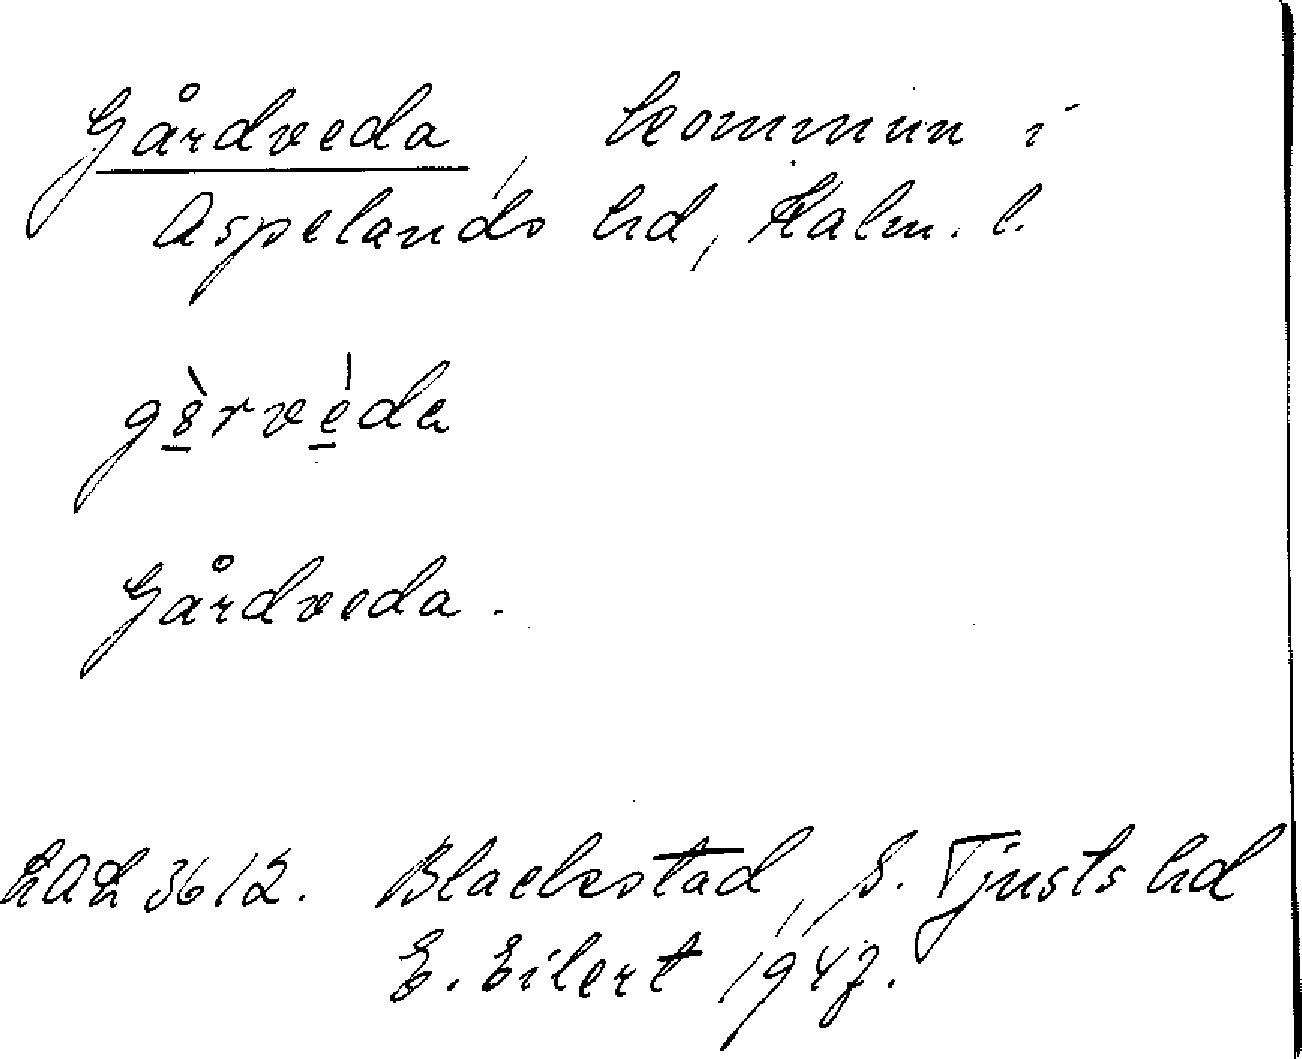 Gårdveda, kommun i
Aspelands hd, Kalm. l.
gèrvèda
Gårdveda.
3612. Blackstad, S. Tjusts hd
E. Eilert 1947.